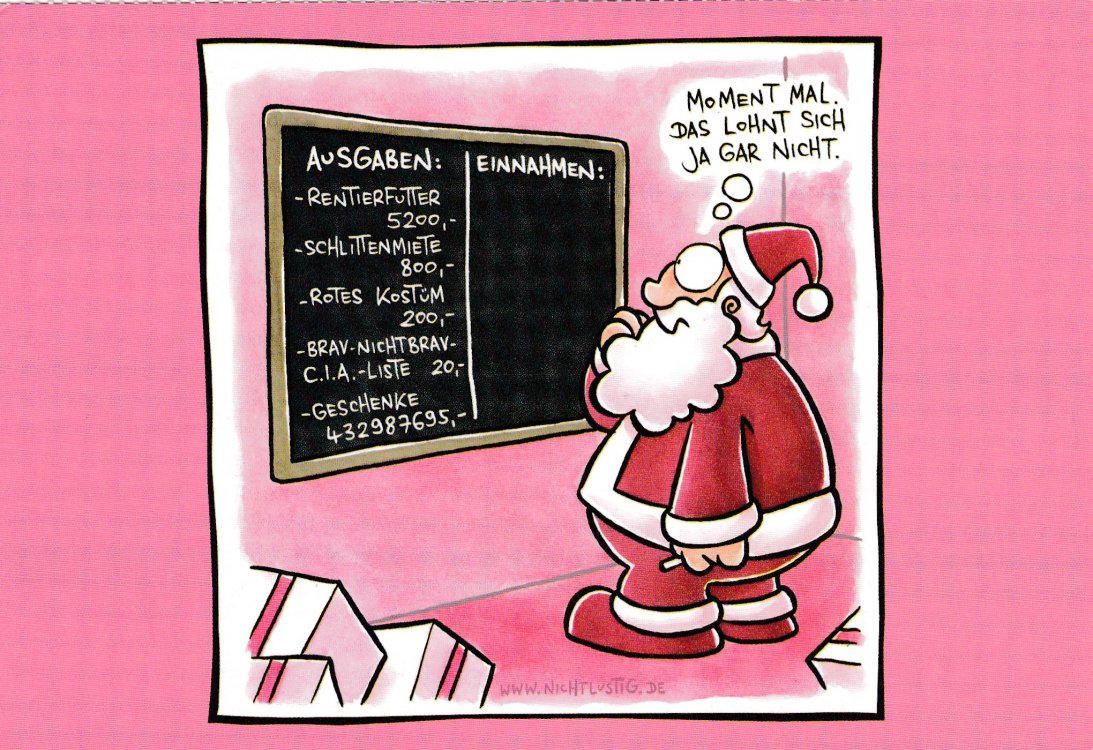 MOMENT MAL.
DAS LOHNT SICH
JA GAR NICHT.
AUSGABEN:
-RENTIERFUTTER
5200,-
-SCHLITTENMIETE
800,-
-ROTES KOSTÜM
200,-
-BRAV-NICHTBRAV-
C.I.A.-LISTE 20,-
-GESCHENKE
432987695,-
EINNAHMEN:
WWW.NICHTLUSTIG.DE